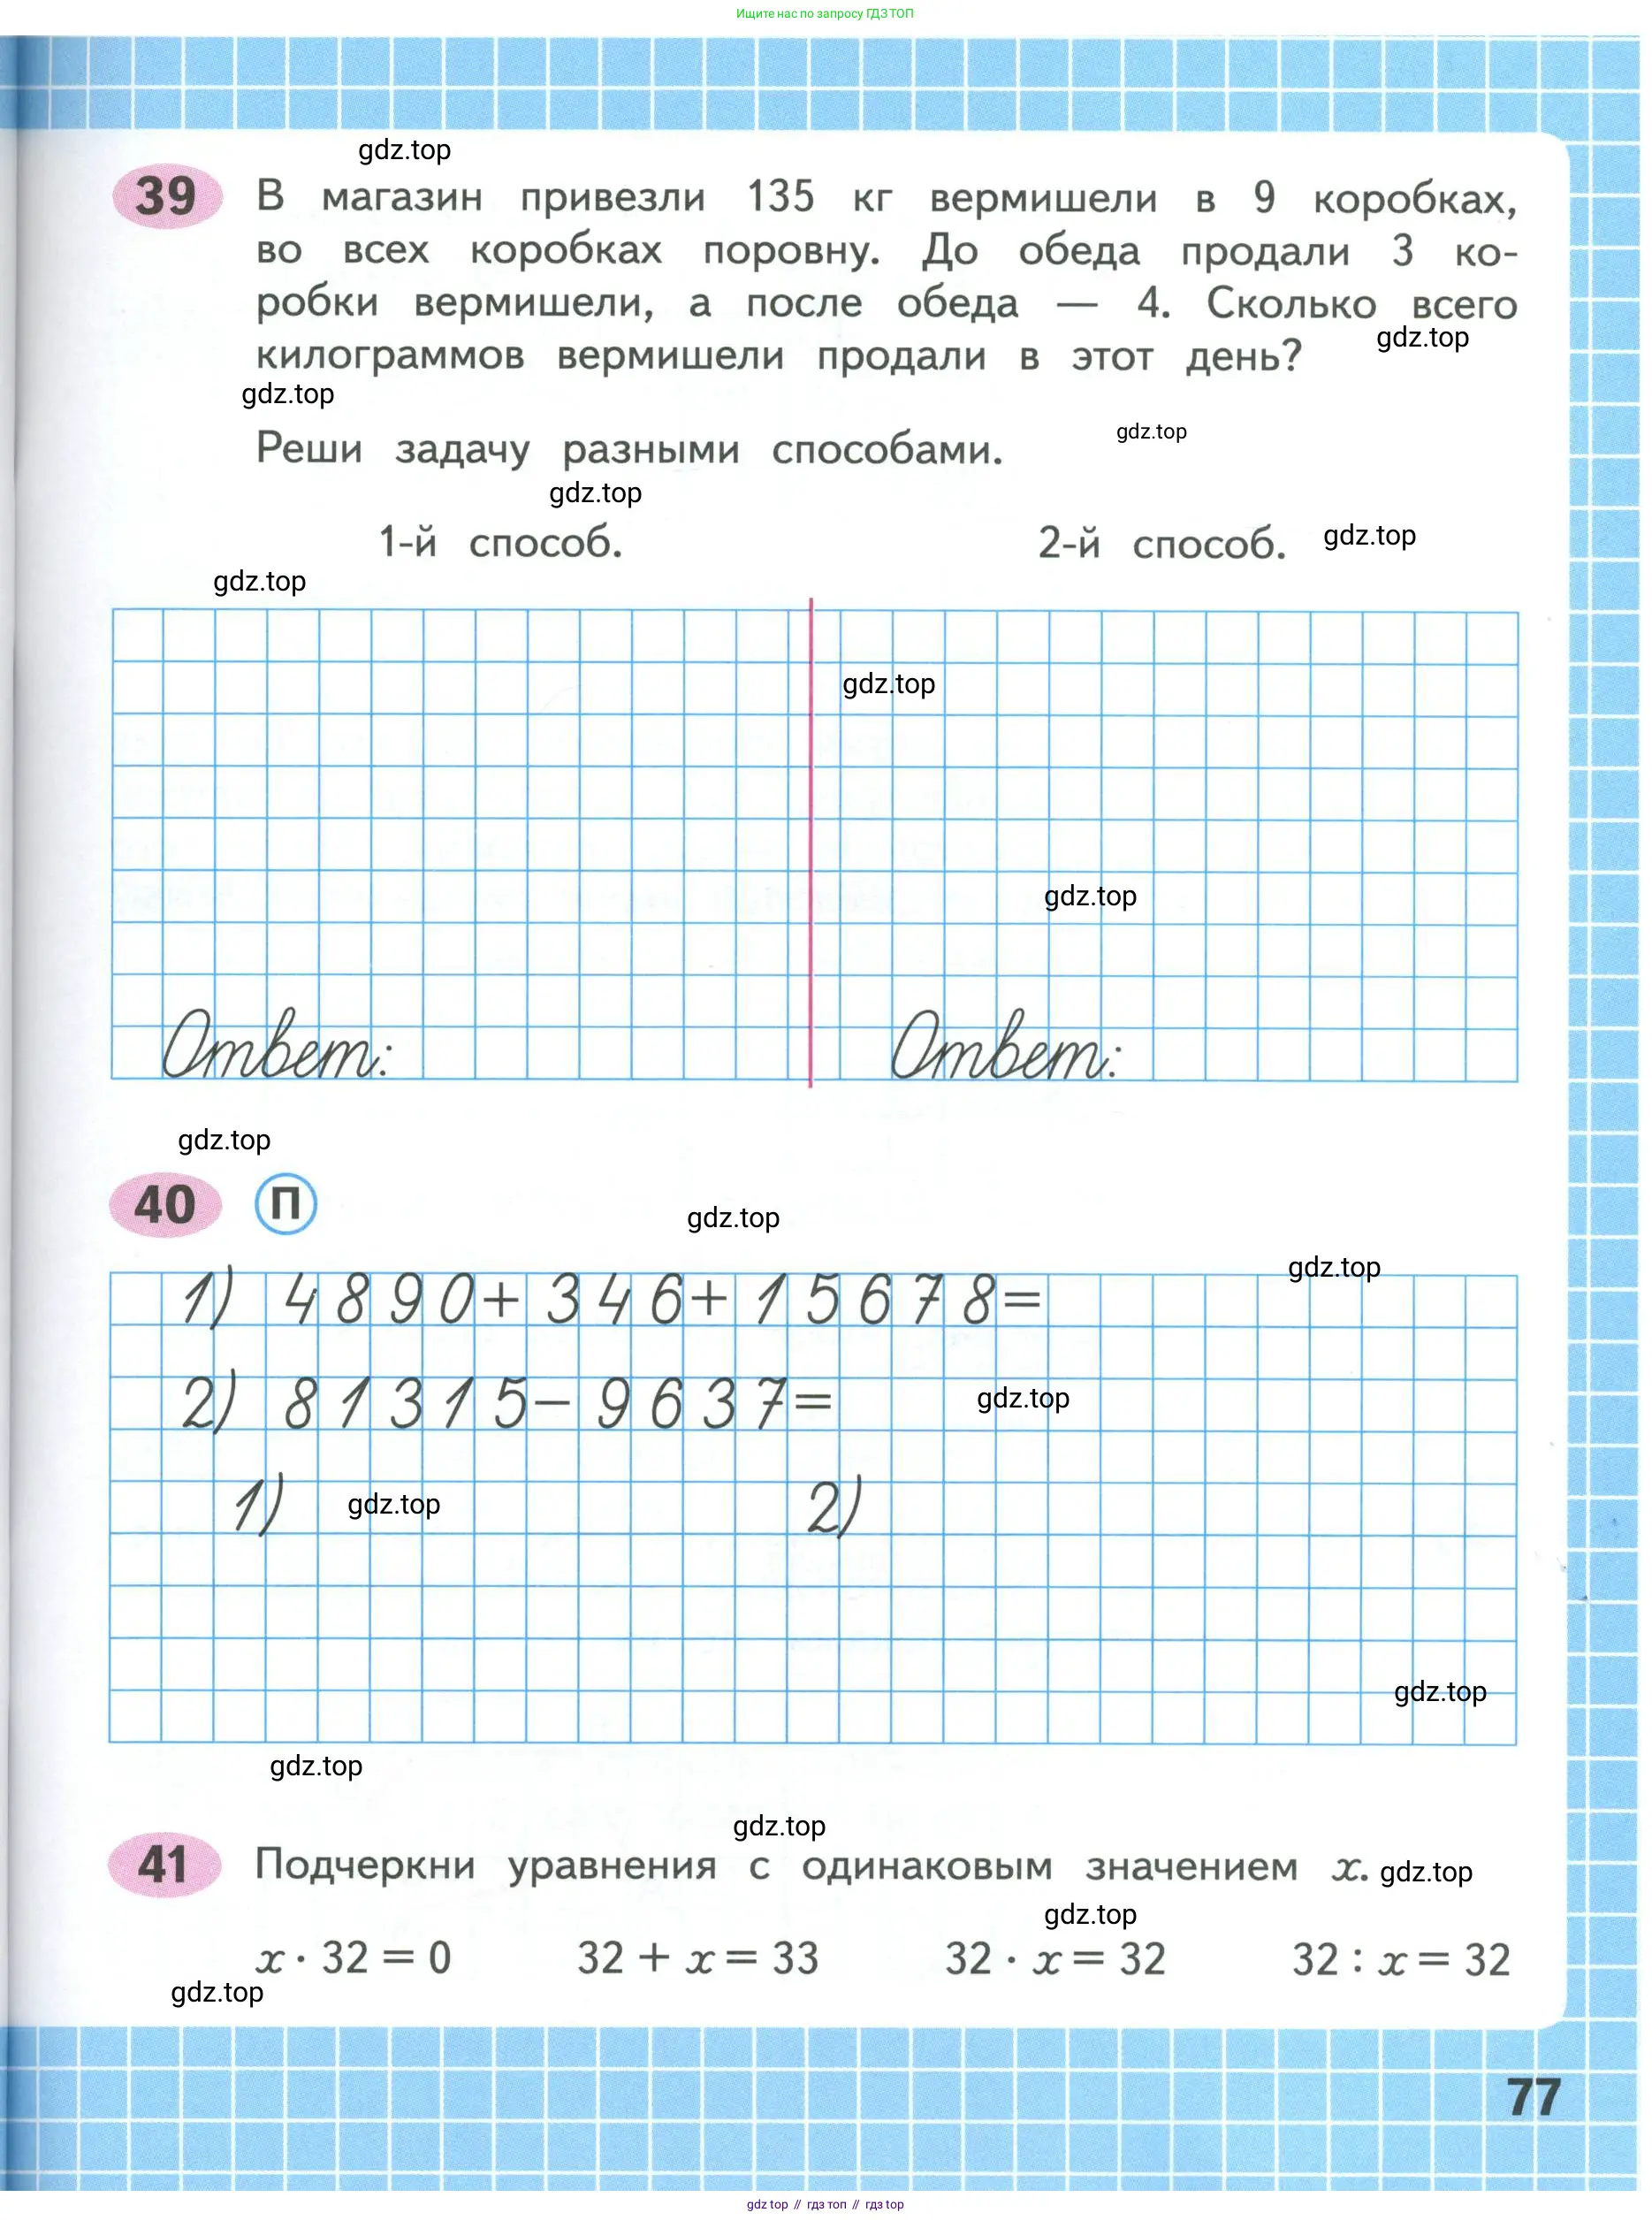 Ищите нас по запросу ГДЗ ТОП
gdz.top
39 В магазин привезли 135 кг вермишели в 9 коробках,
во всех коробках поровну. До обеда продали 3 ко-
робки вермишели, а после обеда — 4. Сколько всего
gdz.top
килограммов вермишели продали в этот день?
gdz.top
gdz.top
Реши задачу разными способами.
gdz.top
1-й способ.
2-й способ. gdz.top
gdz.top
gdz.top
gdz.top
Ответ:
Ответ:
gdz.top
40 П
gdz.top
gdz.top
1) 4890+346+15678=
2) 81315-9637=
gdz.top
1) gdz.top
2)
gdz.top
gdz.top
gdz.top
41 Подчеркни уравнения с одинаковым значением x. gdz.top
gdz.top
x · 32 = 0 32 + x = 33 32 · x = 32 32 : x = 32
gdz.top
77
gdz top // гдз топ // гдз top